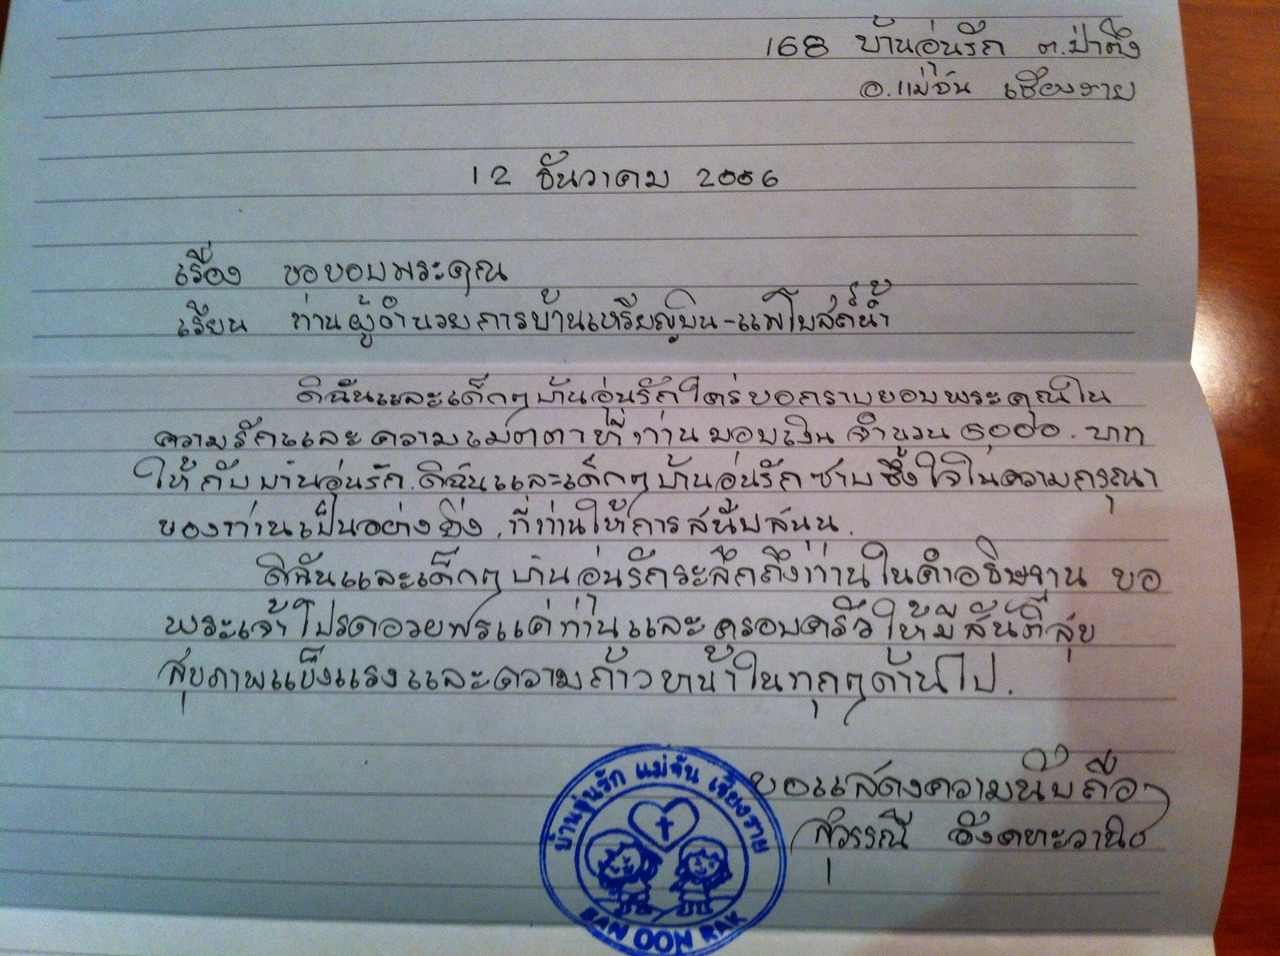 168 บ้านอุ่นรัก ต.ป่าตึง
อ.แม่จัน เชียงราย
12 ธันวาคม 2006
เรื่อง ขอขอบพระคุณ
เรียน ท่านผู้อำนวยการบ้านเหรียญบิน-
ดิฉันและเด็กๆบ้านอุ่นรักใคร่ขอกราบขอบพระคุณใน
ความรักและความเมตตาที่ท่านมอบเงิน จำนวน บาท
ให้กับบ้านอุ่นรัก.ดิฉันและเด็กๆบ้านอุ่นรักซาบซึ้งใจในความกรุณา
ของท่านเป็นอย่างยิ่ง, ที่ท่านให้การสนับสนุน.
ดิฉันและเด็กๆบ้านอุ่นรักระลึกถึงท่านในคำอธิษฐาน ขอ
พระเจ้าโปรดอวยพรแด่ท่านและครอบครัวให้มีสันติสุข
สุขภาพแข็งแรงและความก้าวหน้าในทุกๆด้านไป.
ขอแสดงความนับถือ
สุวรรณี อังคทะวานิช
บ้านอุ่นรัก แม่จัน เชียงราย
BAN OON RAK